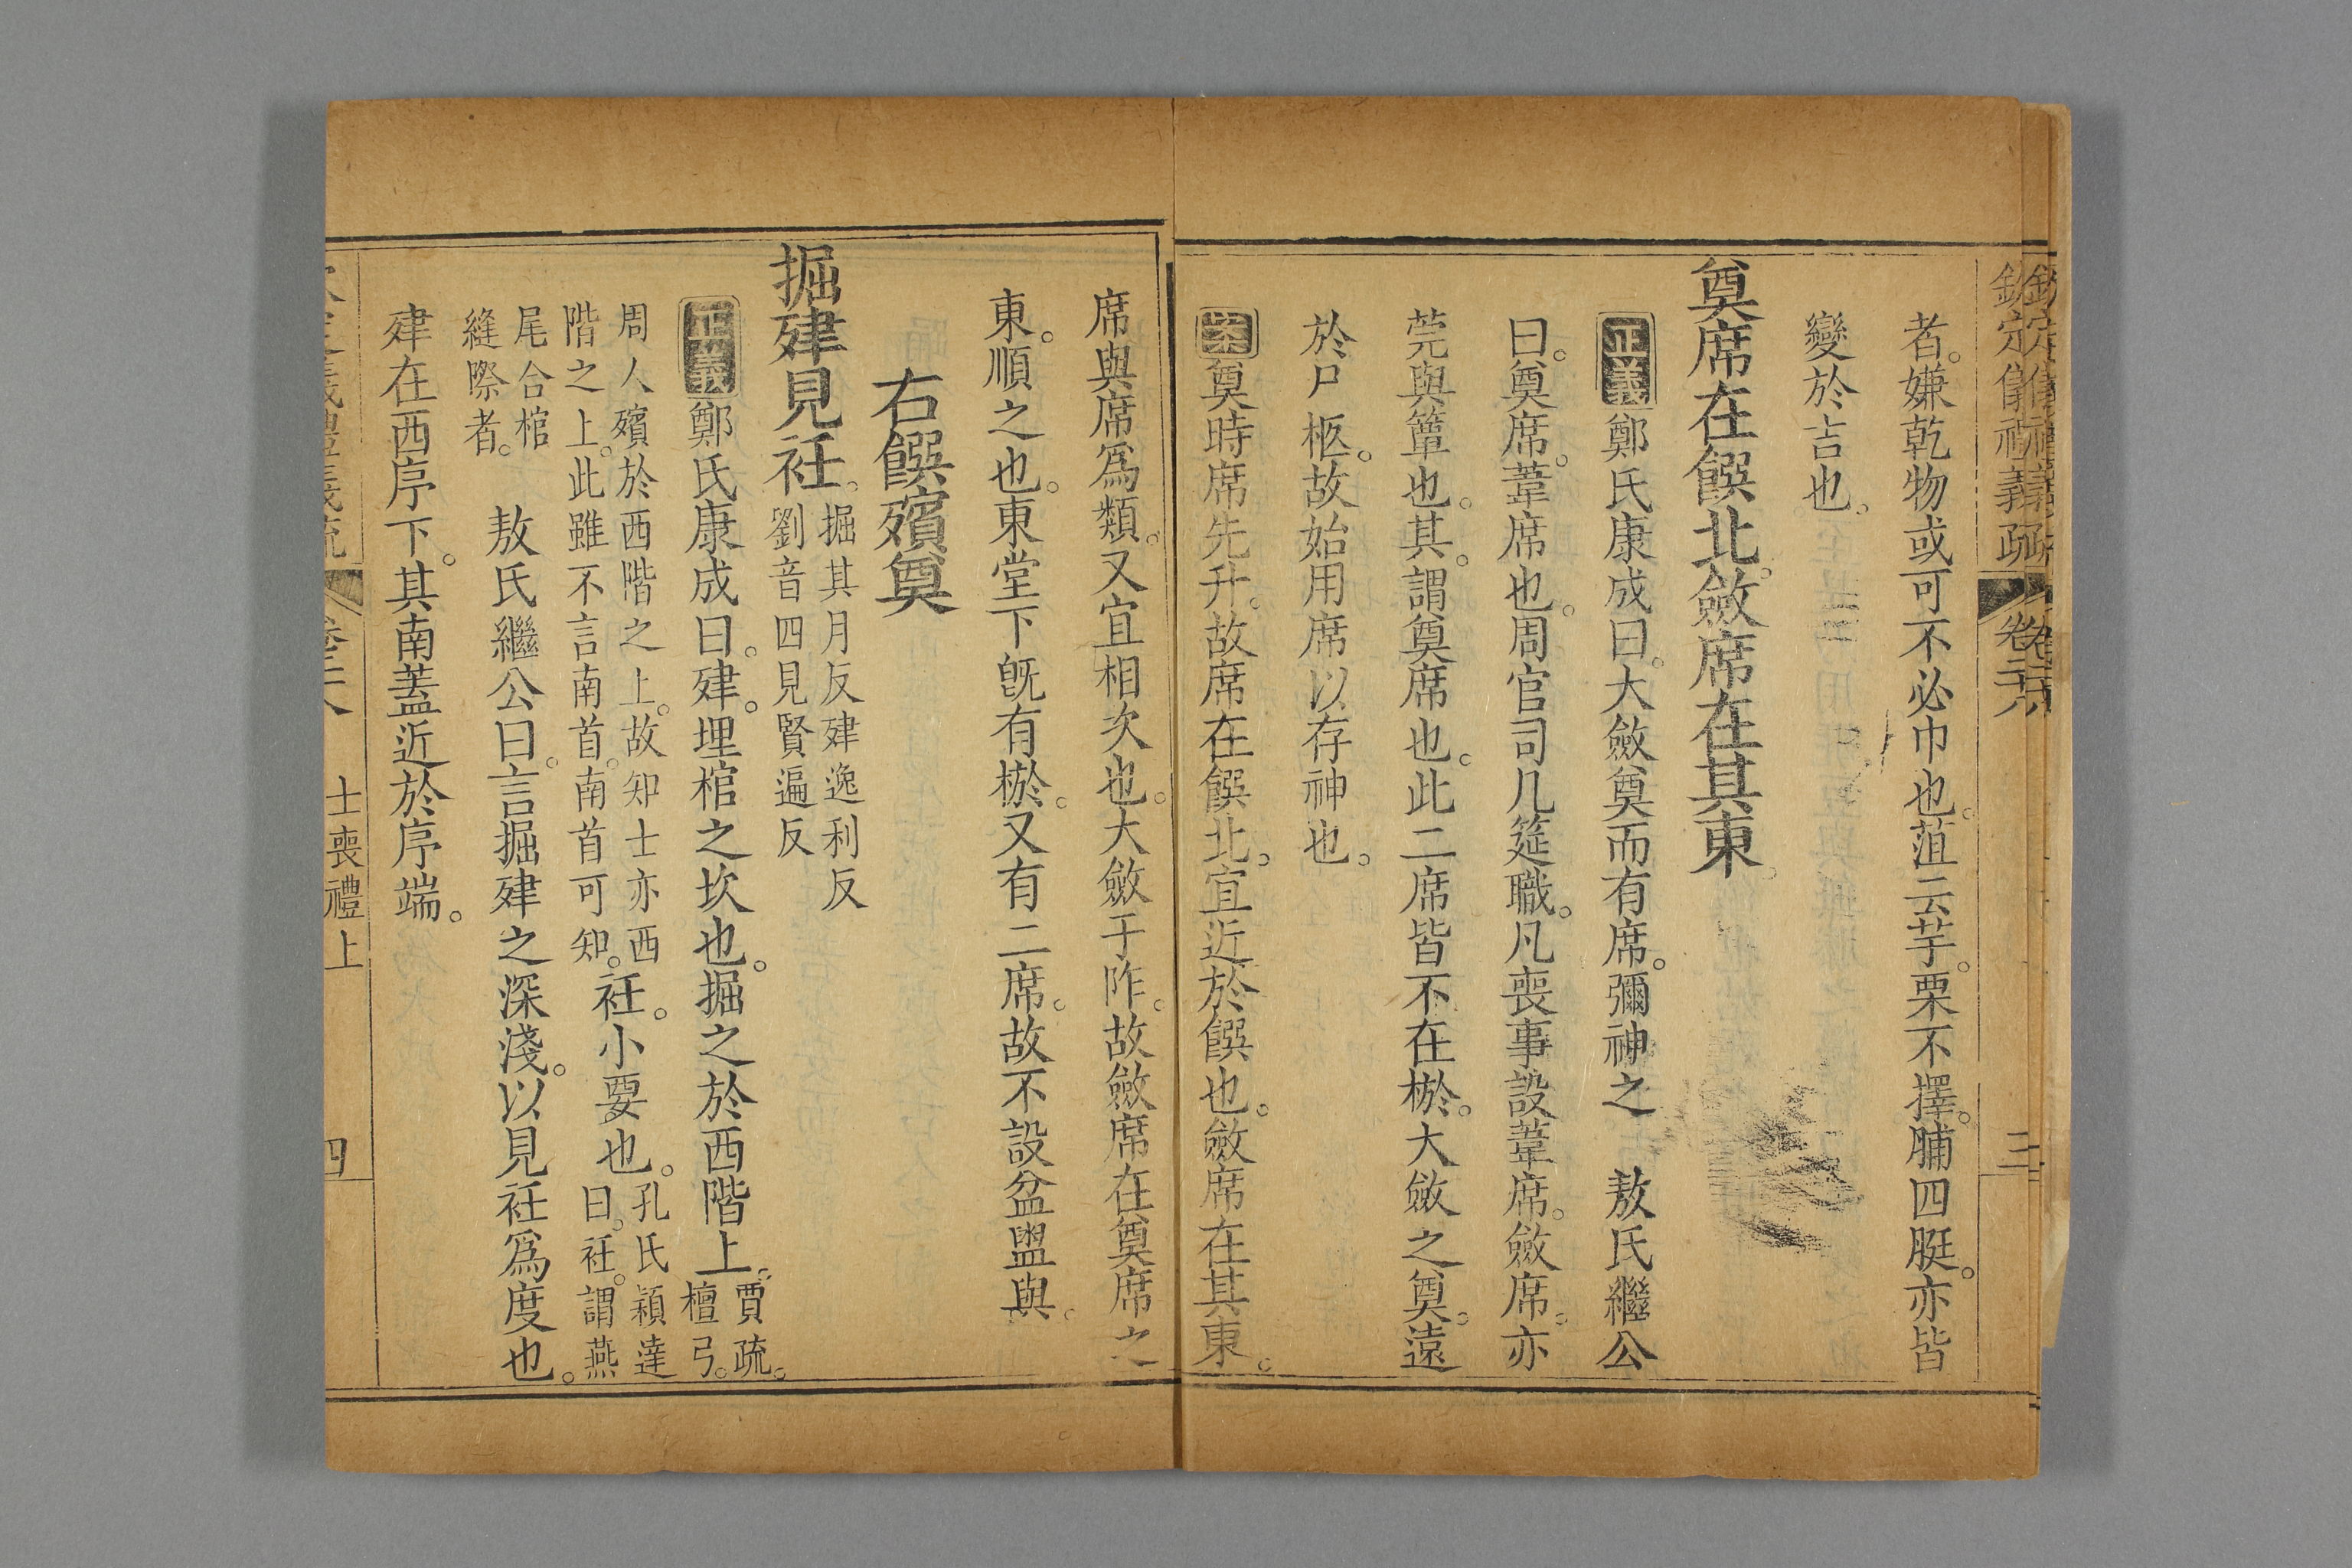 欽定儀禮義疏 卷二十八 三
者。嫌乾物或可不必巾也。菹云芋。栗不擇。脯四脡。亦皆
變於吉也。
奠席在饌北。斂席在其東。
正義鄭氏康成曰。大斂奠而有席。彌神之 敖氏繼公
曰。奠席。葦席也。周官司几筵職。凡喪事設葦席。斂席。亦
莞與簟也。其。謂奠席也。此二席皆不在棜。大斂之奠。遠
於尸柩。故始用席以存神也。
案奠時席先升。故席在饌北。宜近於饌也。斂席在其東。
席與席爲類。又宜相次也。大斂于阼。故斂席在奠席之
東。順之也。東堂下旣有棜。又有二席。故不設盆盥與。
右饌殯奠
掘肂見衽。掘其月反肂逸利反
劉音四見賢遍反
正義鄭氏康成曰。肂。埋棺之坎也。掘之於西階上。賈疏。
檀弓。
周人殯於西階之上。故知士亦西
階之上。此雖不言南首。南首可知。衽。小要也。孔氏穎達
曰。衽。謂燕
尾合棺
縫際者。 敖氏繼公曰。言掘肂之深淺。以見衽爲度也。
肂在西序下。其南蓋近於序端。
士喪禮上 四